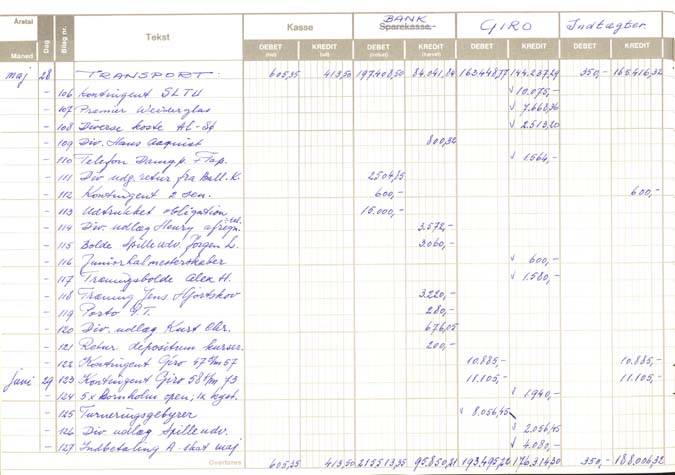 BANK GIRO Indtægter
Årstal Kasse Sparekasse
Måned Dag Bilag nr. Tekst DEBET (ind) KREDIT (ud) DEBET (indsat) KREDIT (hævet) DEBET KREDIT DEBET KREDIT
maj 28 TRANSPORT. 605,35 413,50 197.408,50 84.041,84 163.448,77 144.237,29 350,- 165.416,32
- 106 Kontingent SLTU √ 10.075,-
- 107 Præmier √ 7.668,36
- 108 Diverse √ 2.513,20
- 109 Div. Hans Aaquist 800,32
- 110 Telefon √ 1564,-
- 111 Div udg. retur fra Ball. K. 2504,85
- 112 Kontingent 2 sen. 600,- 600,-
- 113 Udtrukket obligation 15.000,-
- 114 Div. udlæg Henry 3.572,-
- 115 Bolde Spilleudv. Jørgen L. 3.060,-
- 116 Juniorhalmesterskaber √ 600,-
- 117 Træningsbolde Alex H. √ 1.580,-
- 118 Træning Jens Hjortskov 3.220,-
- 119 Porto 280,-
- 120 Div. udlæg Kurt Chr. 676,05
- 121 Retur depositum kurser. 200,-
- 122 Kontingent Giro 57 10.885,- 10.885,-
juni 29 123 Kontingent Giro 58 t/m 73 11.105,- 11.105,-
- 124 5 x Bornholm open; √ 1940,-
- 125 Turneringsgebyrer √ 8.056,45
- 126 Div. udlæg Spilleudv. √ 2.056,45
- 127 Indbetaling A-skat maj √ 4.080,-
Overføres 605,35 413,50 215513,35 95.850,21 193.495,22 176.314,30 350,- 188.006,32